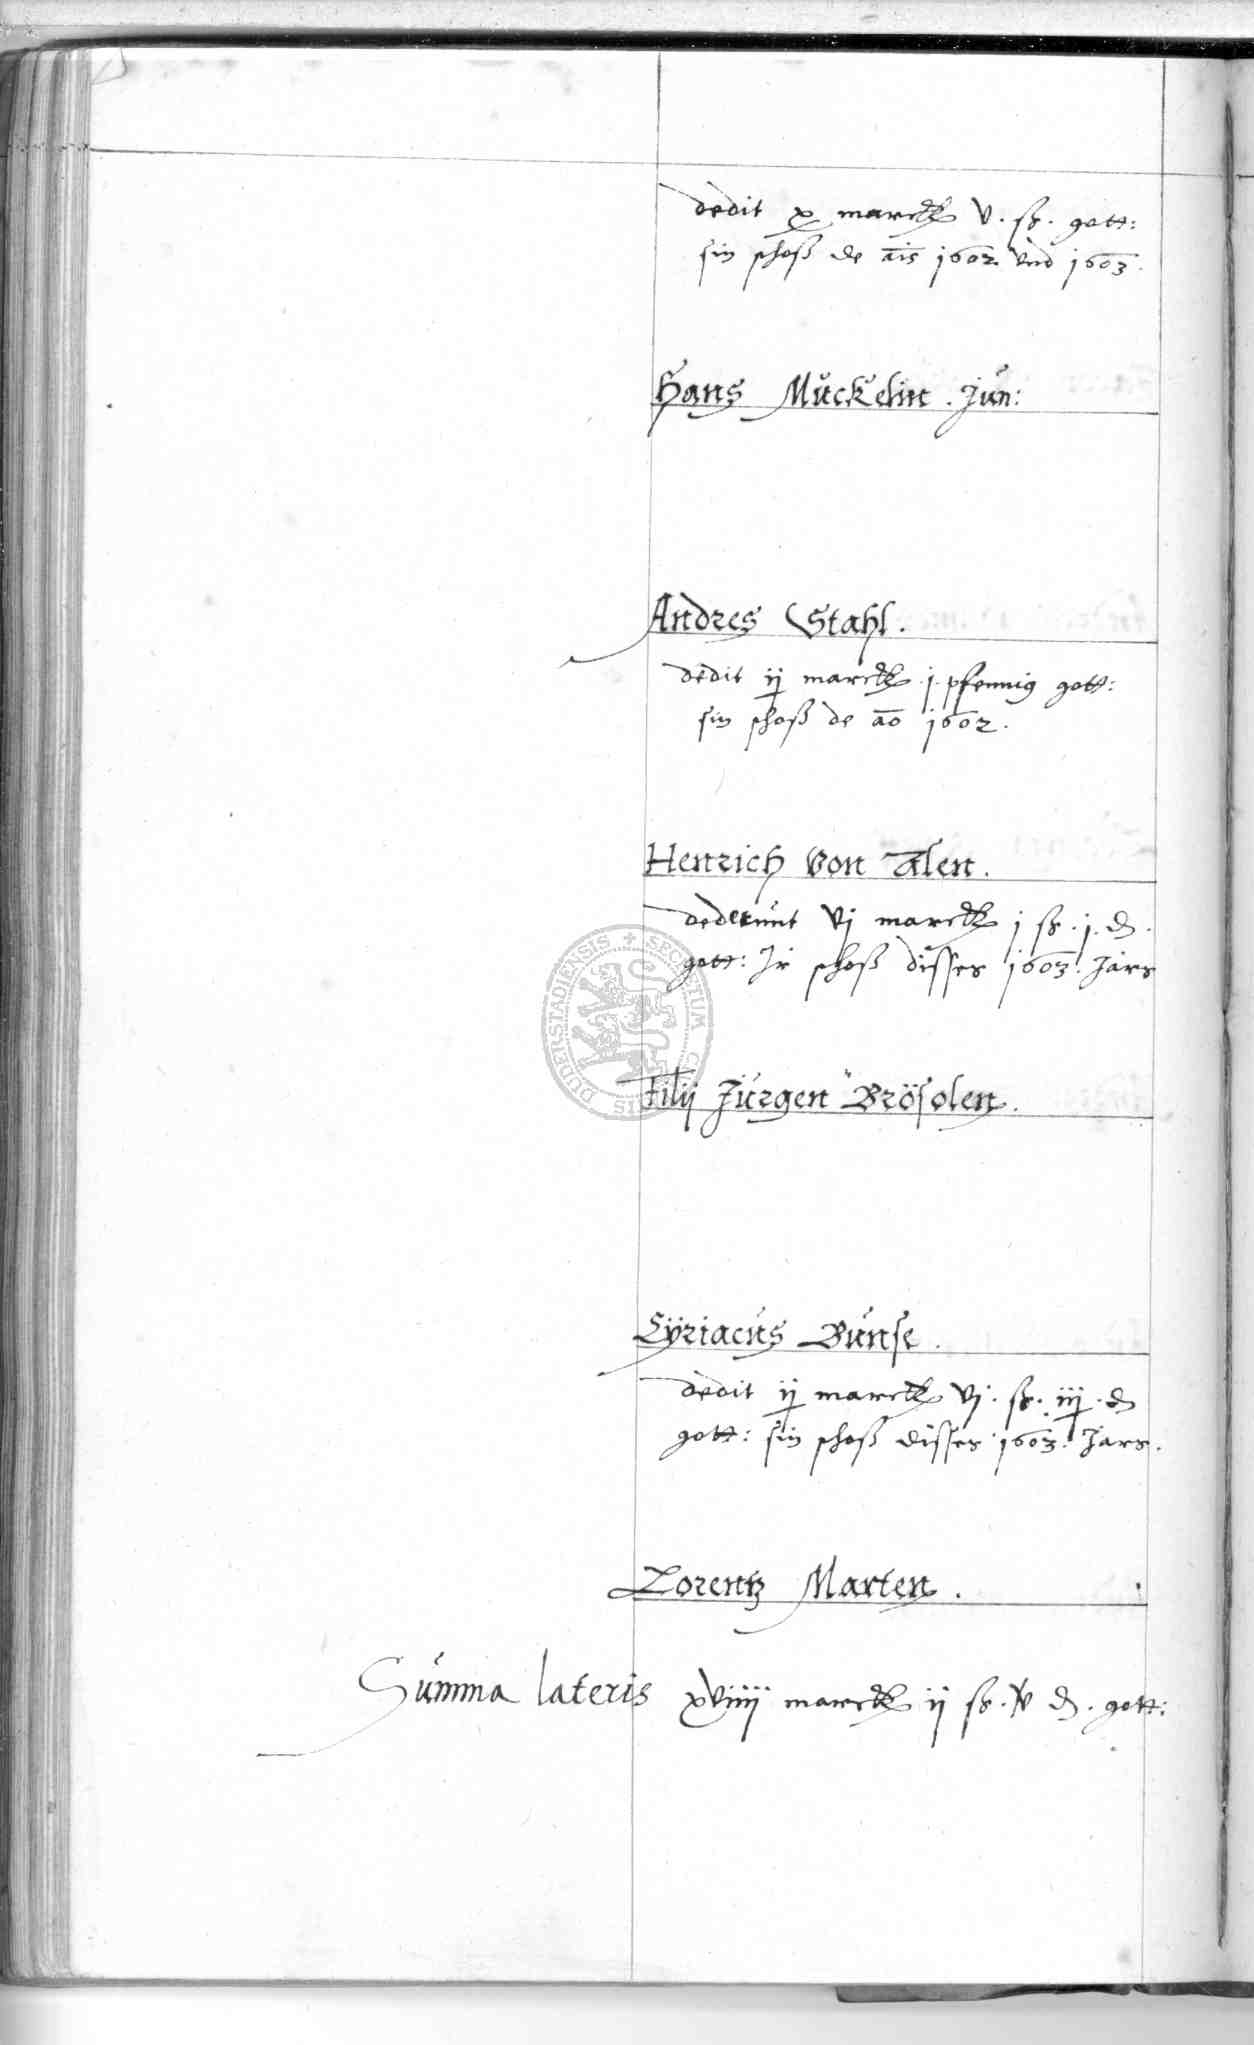 dedit x marck v. ß. gott:
sin schoß de aīs 1602. vnd 1603.
Hans Mückelin. Jün:
Andres Stahl.
dedit ij marck. j. pfennig gott:
sin schoß de aō 1602.
Henrich von Alen.
dederunt vj marck j ß. j. d.
gott: Jr schoß disses 1603. Jars
Filij Jürgen Brösolen.
Cÿriacüs Bünse.
dedit ij marck vj. ß. iij. d
gott: sin schoß disses 1603. Jars.
Lorentz Marten.
Sümma lateris xviiij marck ij ß. v d. gott:
DUDERSTADIENSIS + SECRETUM CIVITATIS